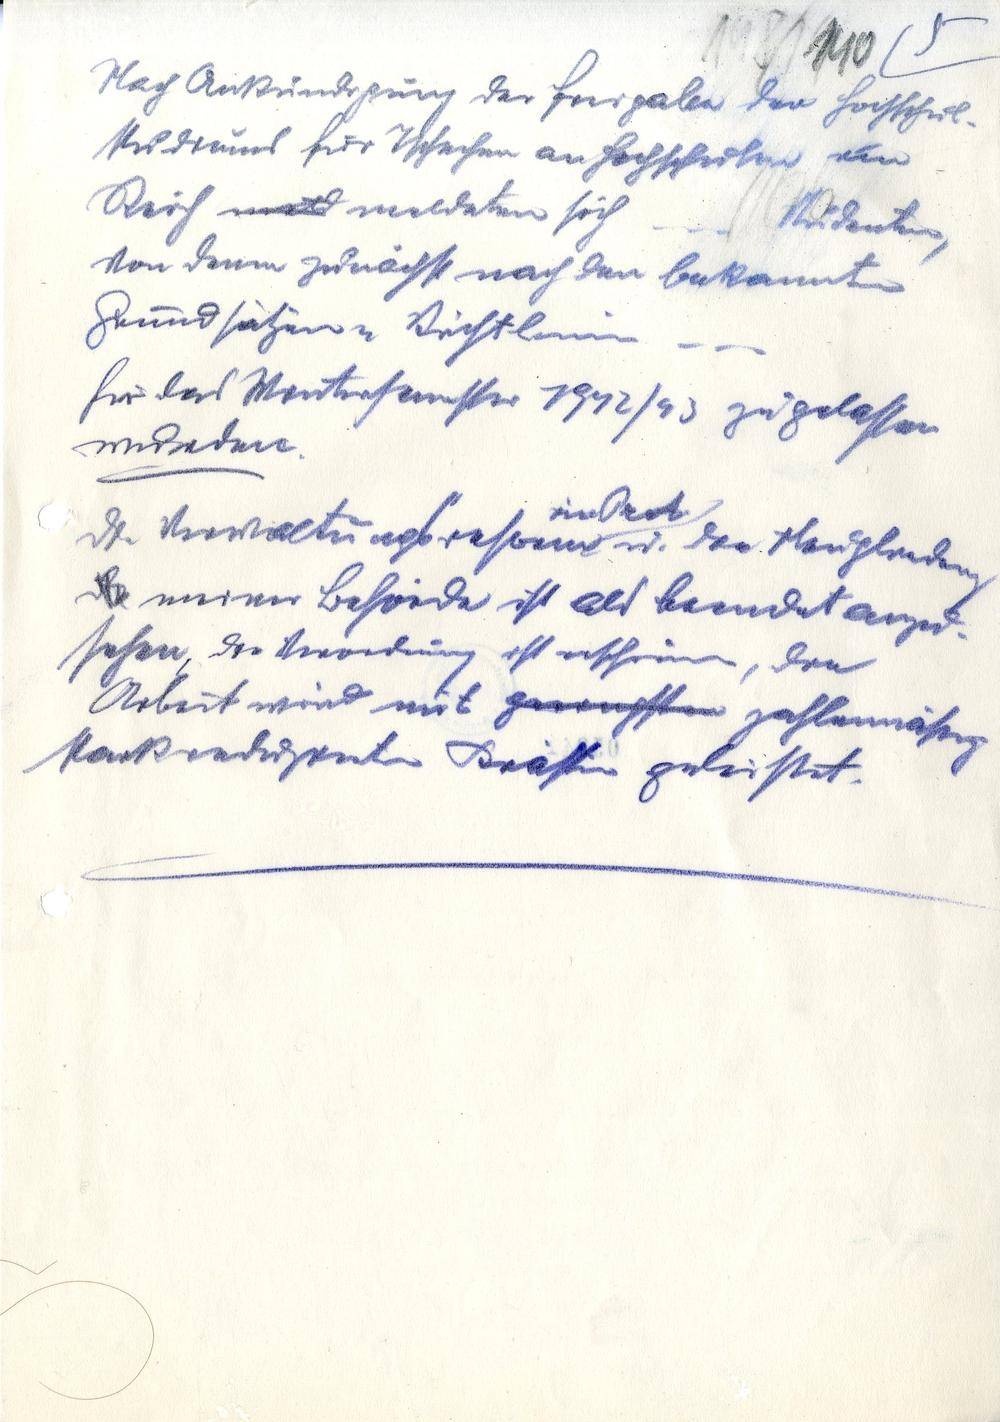 110 (5
Nach Ankündigung der Freigabe des Hochschul-
studiums für Tschechen an Hochschulen im
Reich meldeten sich _ _ _ Studenten,
von denen zunächst nach den bekannten
Grundsätzen u. Richtlinien _ _ _
für das Wintersemester 1942/43 zugelassen
wurden.
Die Verwaltungsreform im Prot. u. die
meiner Behörde ist als beendet anzu-
sehen, die Verordnung ist erschienen, die
Arbeit wird mit zahlenmäßig
stark reduzierten Kräften geleistet.